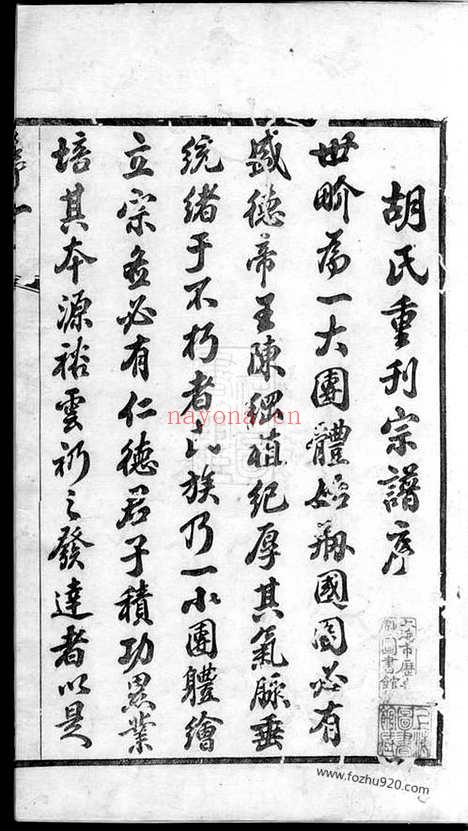 胡氏重刊宗譜序
世界為一大團體始難國固必有
盛德帝王陳綱植紀厚其氣脈垂
統緒于不朽者宗族乃一小團體繪
立宗盖必有仁德君子積功累業
培其本源裕雲礽之發達者以是
nayona.cn
www.fozhu920.com